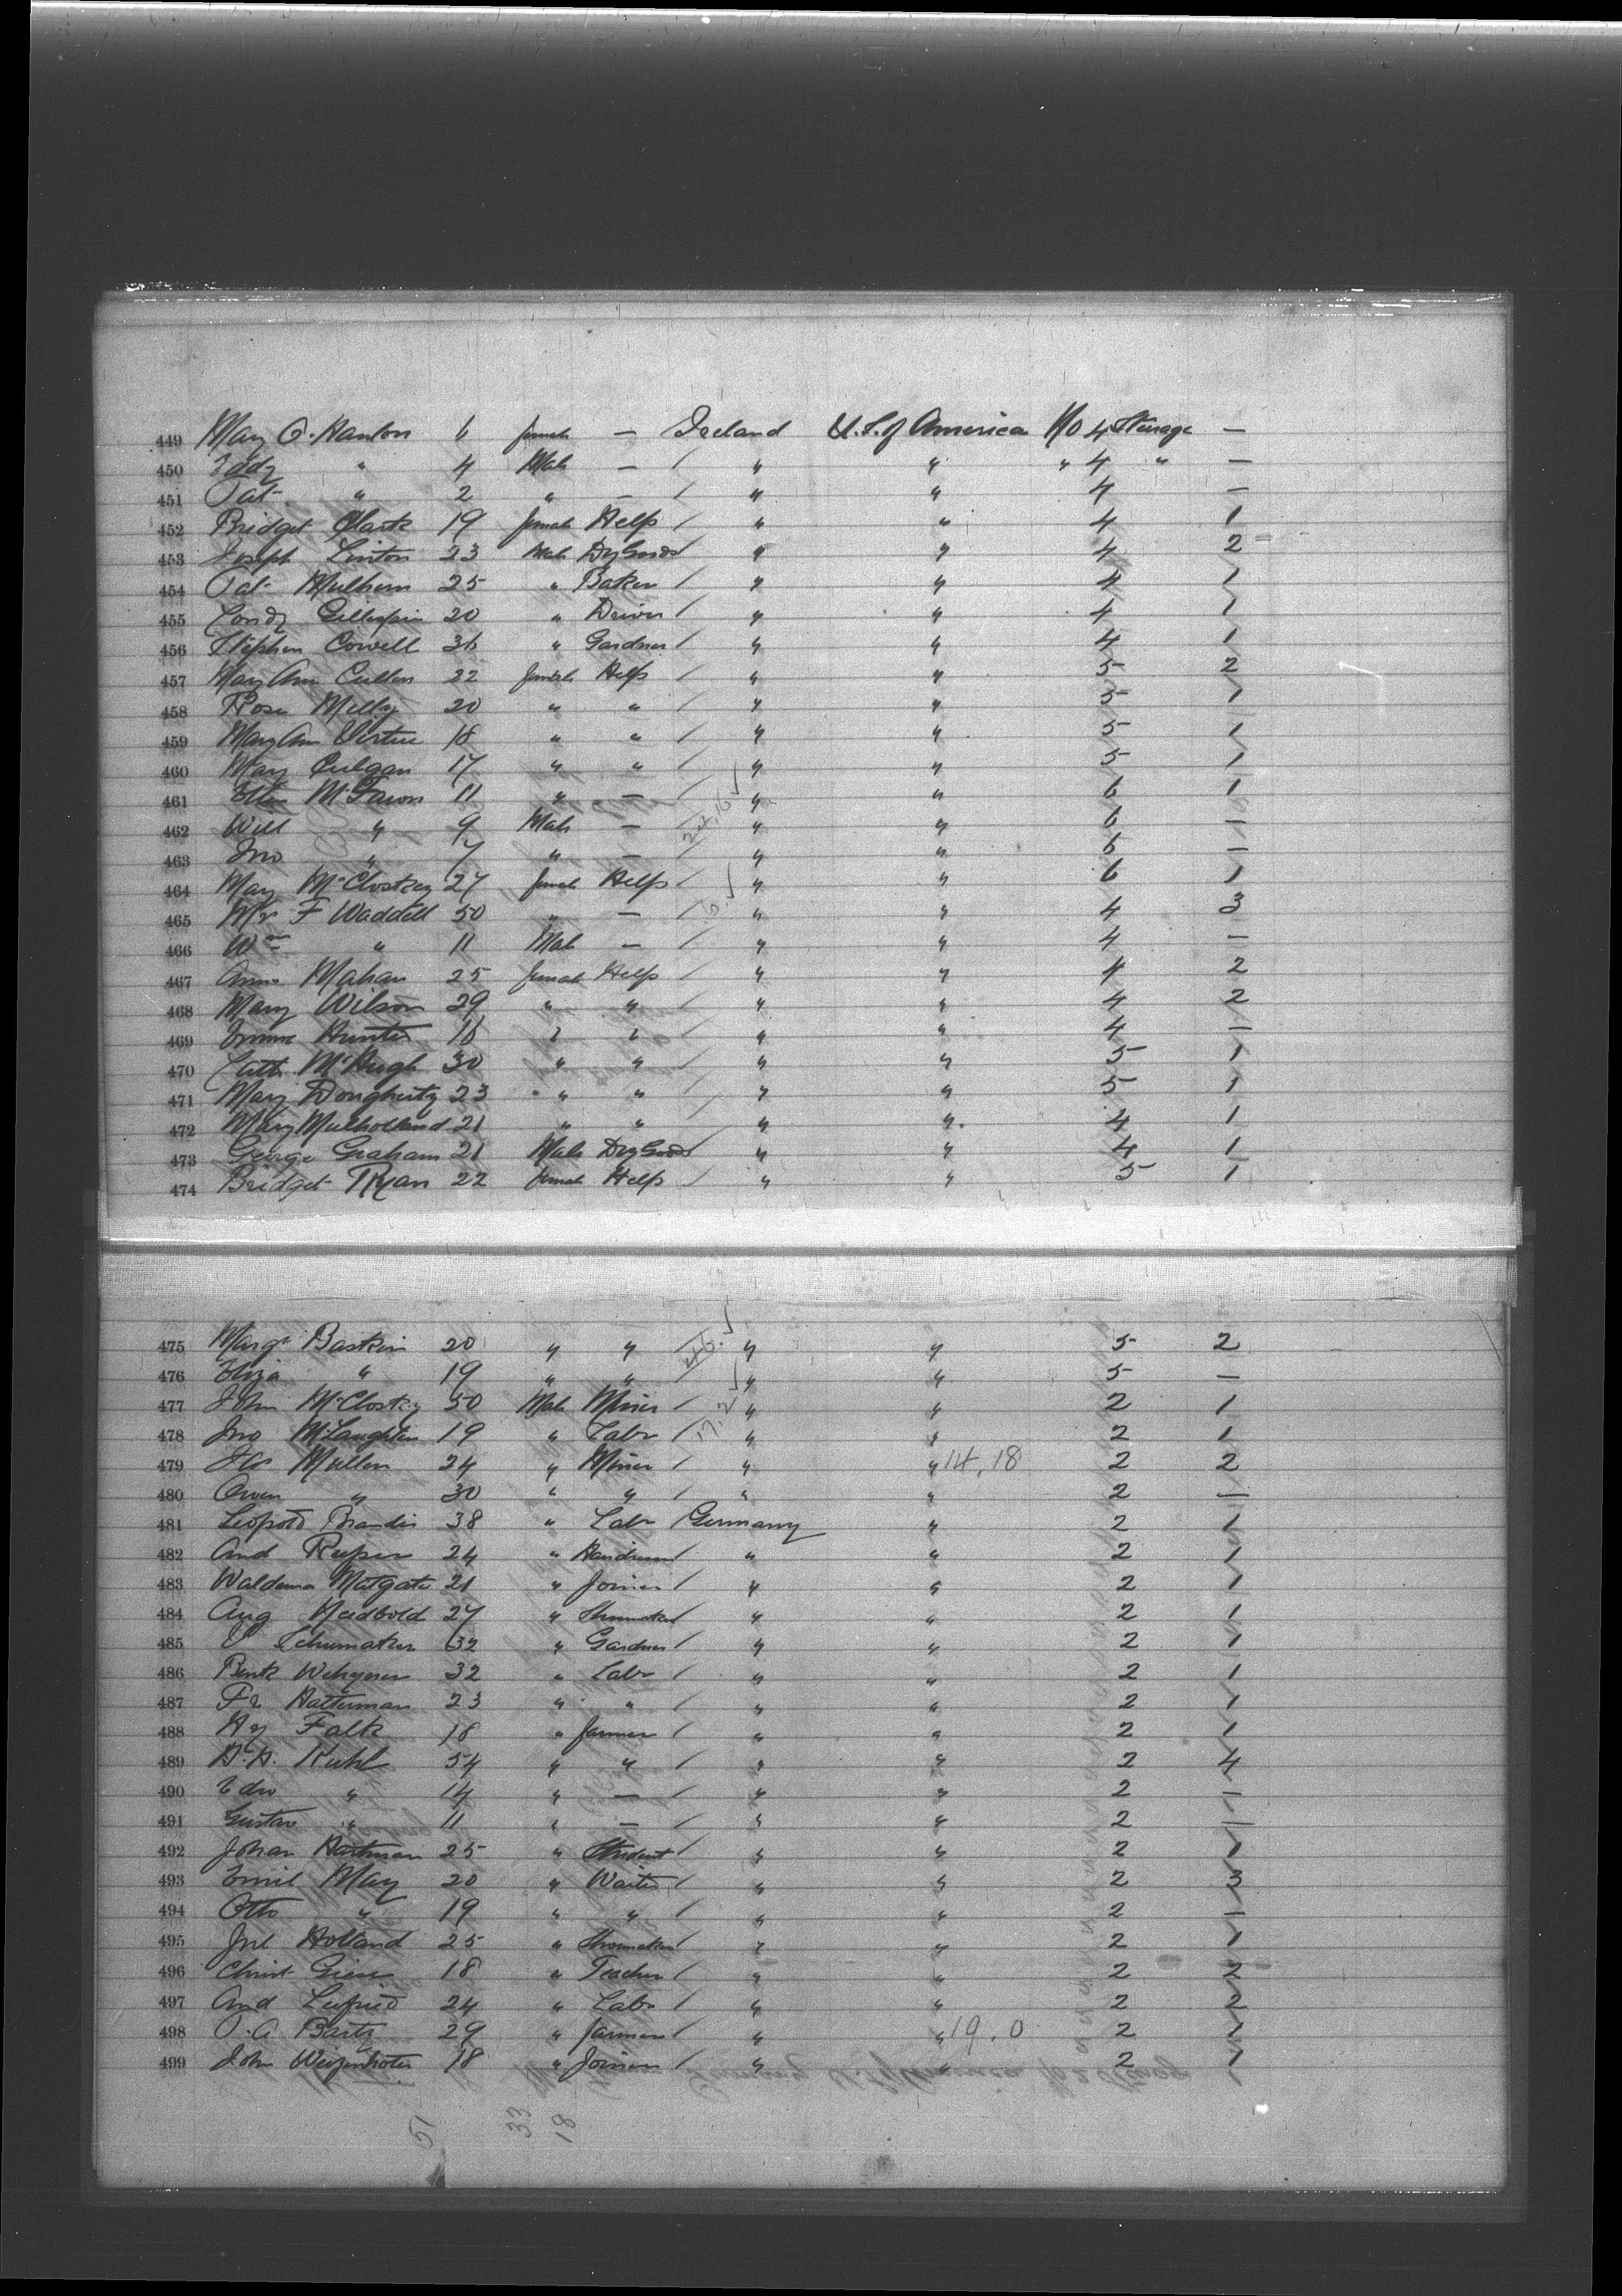 449 Mary O. Hanlon 6 female — Ireland U.S. of America No 4 Steerage —
450 Eddy " 4 Male — / " " " 4 " —
451 Pat " 2 " — / " " 4 —
452 Bridget Clark 19 female Help / " " 4 1
453 Joseph Linton 23 Male Dry Goods / " " 4 2
454 Pat Mulhern 25 " Baker / " " 4 1
455 Condy Gillespie 20 " Driver / " " 4 1
456 Stephen Cowell 36 " Gardner / " " 4 1
457 Mary Ann Cullen 22 female Help / " " 5 2
458 Rose Melly 20 " " / " " 5 1
459 Mary Ann Virtue 18 " " / " " 5 1
460 Mary Culgan 17 " " / " " 5 1
461 Ellen 11 " — " " 6 1
462 Will " 9 Male — " " 6 —
463 Jno " 7 " — " " 6 —
464 Mary McCloskey 27 female Help / " " 6 1
465 F Waddell 50 " — / " " 4 3
466 Wm " 11 Male — / " " 4 —
467 Anne Mahan 25 female Help / " " 4 2
468 Mary Wilson 29 " " / " " 4 2
469 Hunter 16 " " / " " 4 —
470 Cath McHugh 30 " " / " " 5 1
471 Mary Dougherty 23 " " / " " 5 1
472 Mary Mulholland 21 " " / " " 4 1
473 George Graham 21 Male Dry Goods / " " 4 1
474 Bridget Ryan 22 female Help / " " 5 1
475 Margt Baskin 20 " " / " " 5 2
476 Eliza " 19 " " / " " 5 —
477 John McCloskey 50 Male Miner / " " 2 1
478 Jno McLaughlin 19 " Labr / " " 2 1
479 Mullen 24 " Miner / " " 14.18 2 2
480 Owen " 30 " " / " " 2 —
481 Leopold Brandis 38 " Labr / Germany " 2 1
482 And 24 " / " " 2 1
483 Waldemar 21 " Joiner / " " 2 1
484 Aug Neidbold 27 " Shoemaker / " " 2 1
485 Schumaker 32 " Gardner / " " 2 1
486 32 " Labr / " " 2 1
487 Fr Hatterman 23 " " / " " 2 1
488 Hy Falk 18 " farmer / " " 2 1
489 Kuhl 54 " " / " " 2 4
490 Edw " 14 " — / " " 2 —
491 Gustav " 11 " — / " " 2 —
492 Johan Hartman 25 " Student / " " 2 1
493 Emil May 20 " Waiter / " " 2 3
494 Otto " 19 " " / " " 2 —
495 Jul Holland 25 " Shoemaker / " " 2 1
496 Christ Giese 18 " Teacher / " " 2 2
497 And 24 " Labr / " " 2 2
498 Bartz 29 " farmer / " " 19.0 2 1
499 John 18 " Joiner / " " 2 1
51 33 18